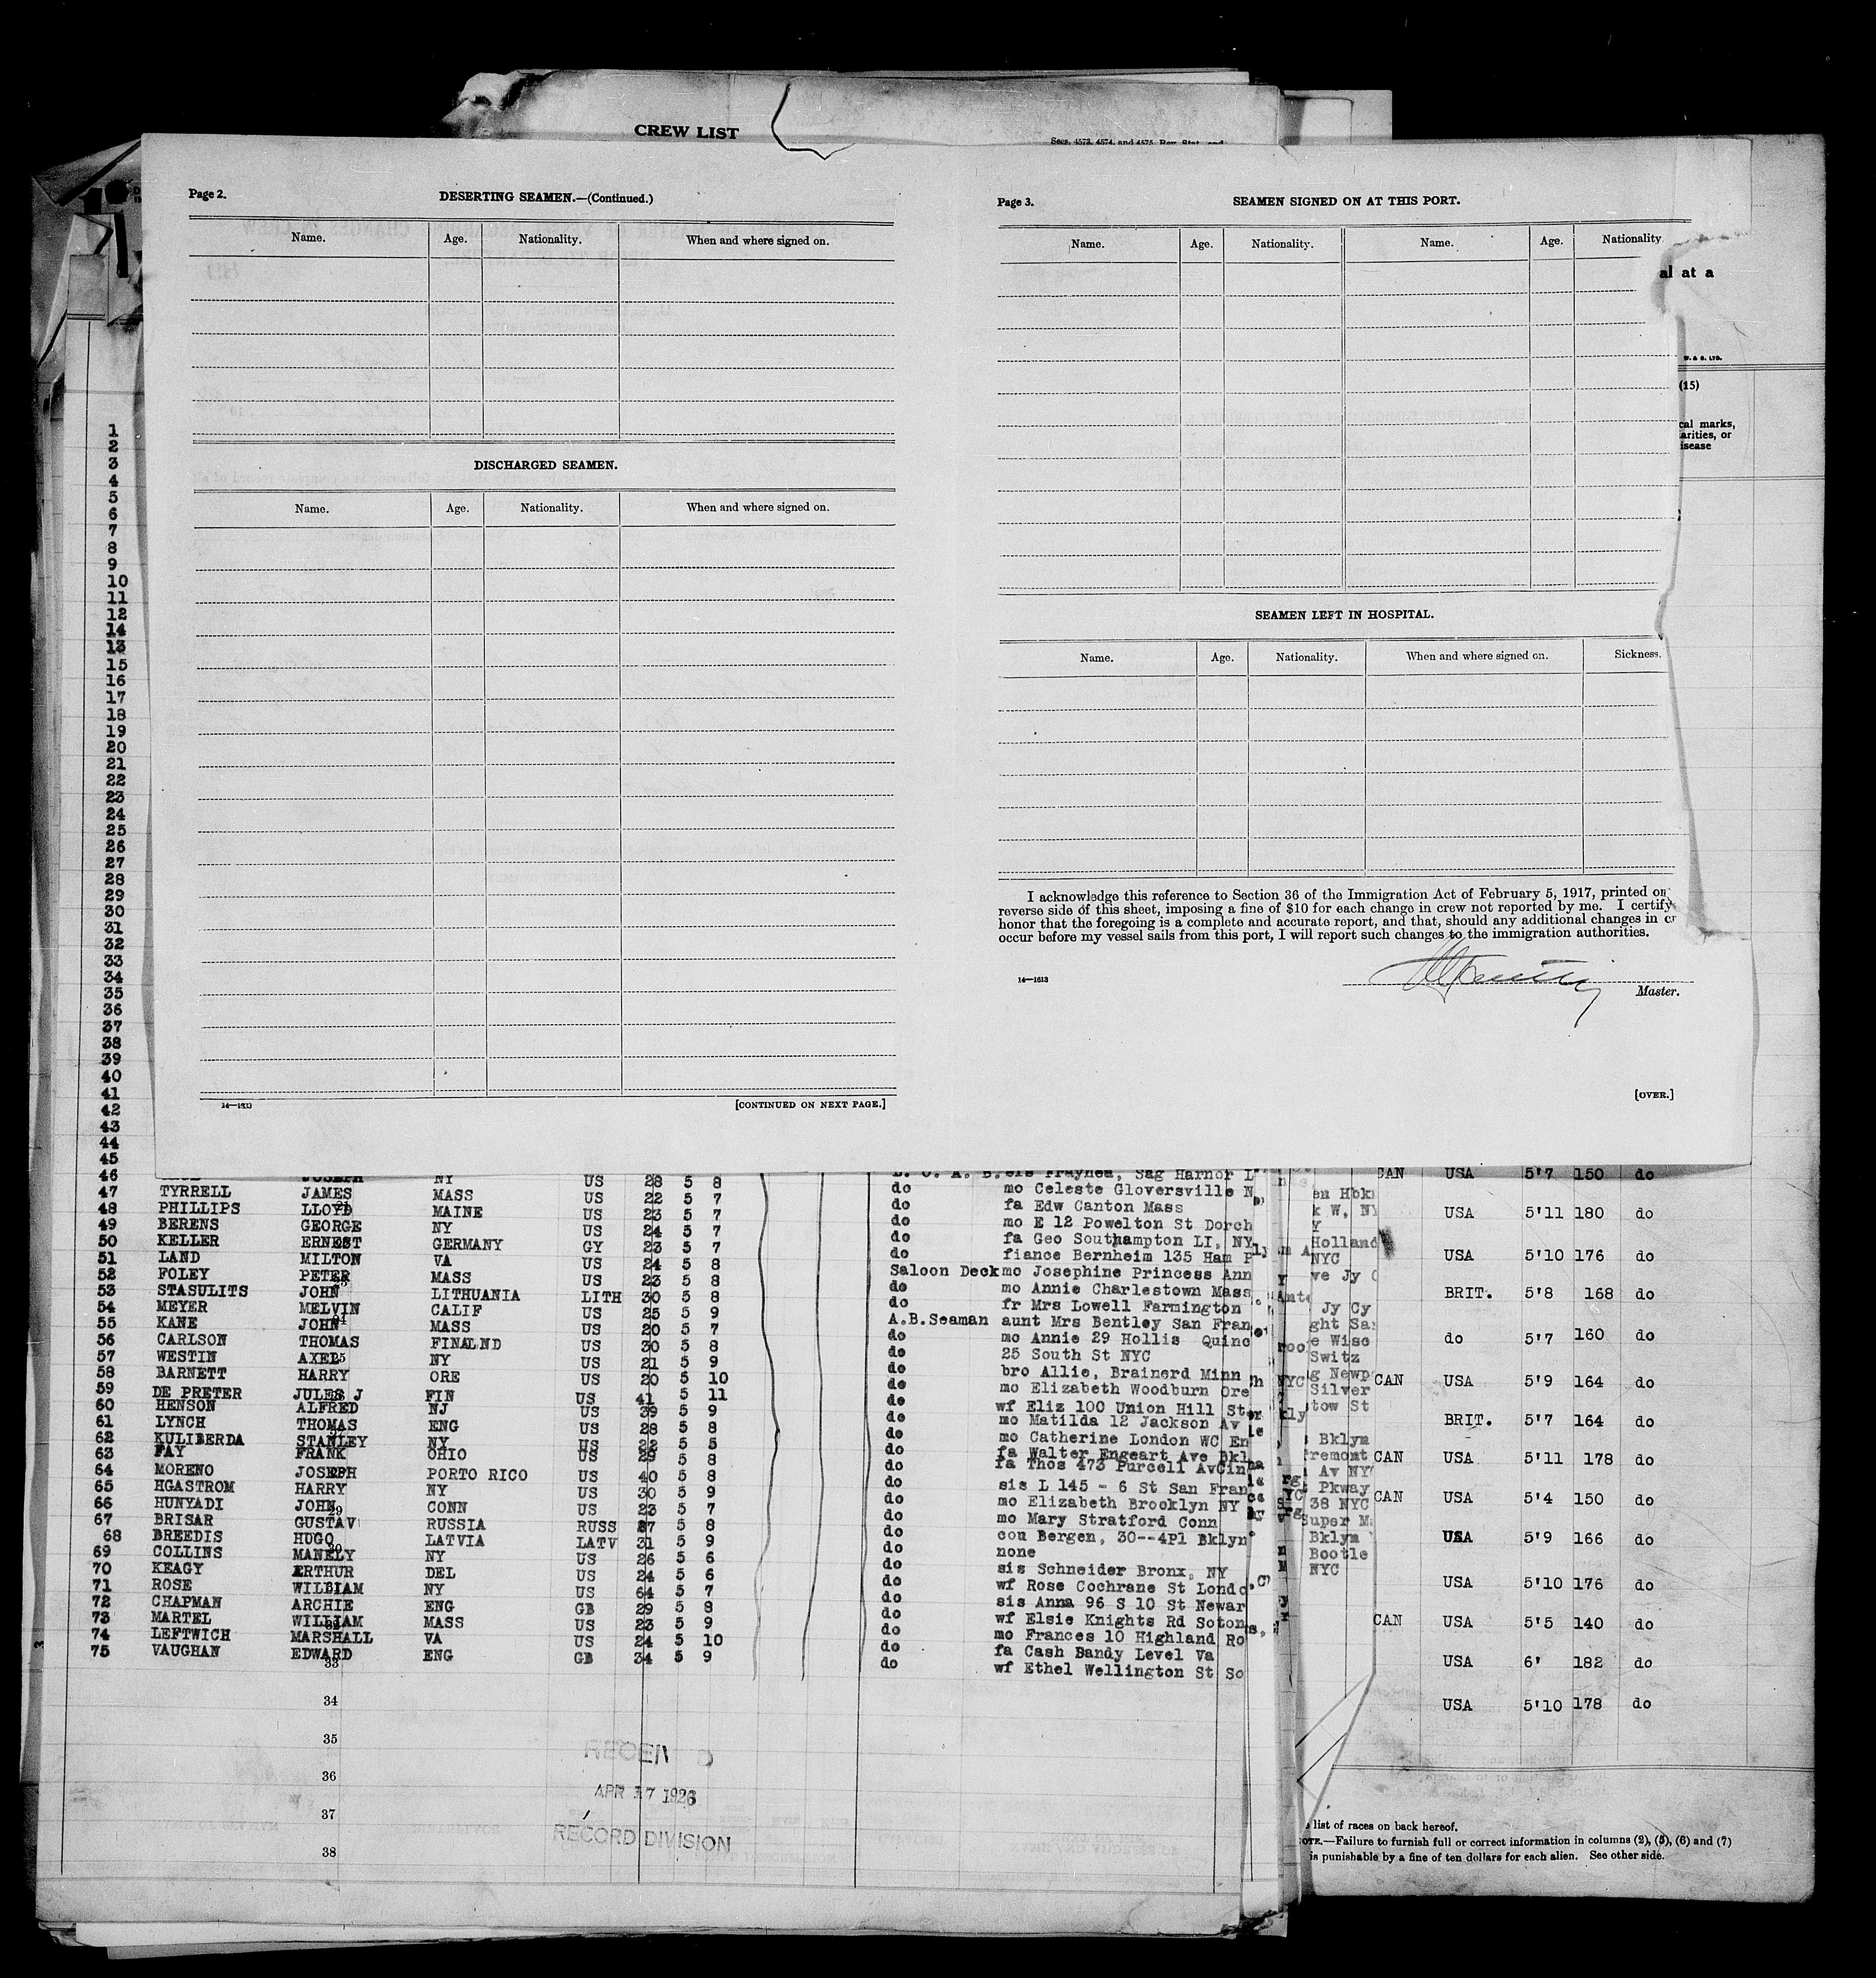 CREW LIST
Secs. 4573, 4574, and 4575, Rev. Stat. and
Page 2.
DESERTING SEAMEN.—(Continued.)
Name. Age. Nationality. When and where signed on.
DISCHARGED SEAMEN.
Name. Age. Nationality. When and where signed on.
14—1613
[CONTINUED ON NEXT PAGE.]
Page 3.
SEAMEN SIGNED ON AT THIS PORT.
Name. Age. Nationality. Name. Age. Nationality
SEAMEN LEFT IN HOSPITAL.
Name. Age. Nationality. When and where signed on. Sickness.
I acknowledge this reference to Section 36 of the Immigration Act of February 5, 1917, printed on
reverse side of this sheet, imposing a fine of $10 for each change in crew not reported by me. I certify
honor that the foregoing is a complete and accurate report, and that, should any additional changes in cr
occur before my vessel sails from this port, I will report such changes to the immigration authorities.
14—1613
Master.
[OVER.]
al at a
W. & S. LTD.
(15)
cal marks,
arities, or
isease
1
2
3
4
5
6
7
8
9
10
11
12
14
13
15
16
17
18
19
20
21
22
23
24
25
26
27
28
29
30
31
32
33
34
35
36
37
38
39
40
41
42
43
44
45
46 JOSEPH NY US 28 5 8
47 TYRRELL JAMES MASS US 22 5 7 do mo Celeste Gloversville N
48 PHILLIPS LLOYD MAINE US 23 5 7 do fa Edw Canton Mass
49 BERENS GEORGE NY US 24 5 7 do mo E 12 Powelton St Dorch
50 KELLER ERNEST GERMANY GY 23 5 7 do fa Geo Southampton LI, NY
51 LAND MILTON VA US 24 5 8 do fiance Bernheim 135 Ham P
52 FOLEY PETER MASS US 23 5 8 Saloon Deck mo Josephine Princess Ann
53 STASULITS JOHN LITHUANIA LITH 30 5 8 do mo Annie Charlestown Mass
54 MEYER MELVIN CALIF US 25 5 9 do fr Mrs Lowell Farmington
55 KANE JOHN MASS US 20 5 7 A.B.Seaman aunt Mrs Bentley San Fran
56 CARLSON THOMAS FINALND US 30 5 8 do mo Annie 29 Hollis Quinc
57 WESTIN AXEL NY US 21 5 9 do 25 South St NYC
58 BARNETT HARRY ORE US 20 5 10 do bro Allie, Brainerd Minn
59 DE PRETER JULES J FIN US 41 5 11 do mo Elizabeth Woodburn Ore
60 HENSON ALFRED NJ US 39 5 9 do wf Eliz 100 Union Hill St
61 LYNCH THOMAS ENG US 28 5 8 do mo Matilda 12 Jackson Av
62 KULIBERDA STANLEY NY US 22 5 5 do mo Catherine London WC En
63 FAY FRANK OHIO US 29 5 8 do fa Walter Engeart Ave Bkl
64 MORENO JOSEPH PORTO RICO US 40 5 8 do fa Thos 473 Purcell AvCin
65 HGASTROM HARRY NY US 30 5 9 do sis L 145 - 6 St San Fran
66 HUNYADI JOHN CONN US 23 5 7 do mo Elizabeth Brooklyn NY
67 BRISAR GUSTAV RUSSIA RUSS 37 5 8 do mo Mary Stratford Conn
68 BREEDIS HUGO LATVIA LATV 31 5 9 do cou Bergen, 30--4Pl Bklyn
69 COLLINS MANELY NY US 26 5 6 do none
70 KEAGY ERTHUR DEL US 24 5 6 do sis Schneider Bronx, NY
71 ROSE WILLIAM NY US 64 5 7 do wf Rose Cochrane St Londo
72 CHAPMAN ARCHIE ENG GB 29 5 8 do sis Anna 96 S 10 St Newar
73 MARTEL WILLIAM MASS US 23 5 9 do wf Elsie Knights Rd Soton
74 LEFTWICH MARSHALL VA US 24 5 10 do mo Frances 10 Highland Ro
75 VAUGHAN EDWARD ENG GB 34 5 9 do fa Cash Bandy Level Va
do wf Ethel Wellington St So
33
34
35
36
37
38
APR 17 1926
RECORD DIVISION
CAN USA 5'7 150 do
USA 5'11 180 do
USA 5'10 176 do
BRIT. 5'8 168 do
do 5'7 160 do
CAN USA 5'9 164 do
BRIT. 5'7 164 do
CAN USA 5'11 178 do
CAN USA 5'4 150 do
USA 5'9 166 do
USA 5'10 176 do
CAN USA 5'5 140 do
USA 6' 182 do
USA 5'10 178 do
Holland
NYC
Jy Cy
Switz
Silver
Bklyn
Av NY
Pkway
38 NYC
Bklyn
Bootle
NYC
list of races on back hereof.
OTE.—Failure to furnish full or correct information in columns (2), (5), (6) and (7)
is punishable by a fine of ten dollars for each alien. See other side.